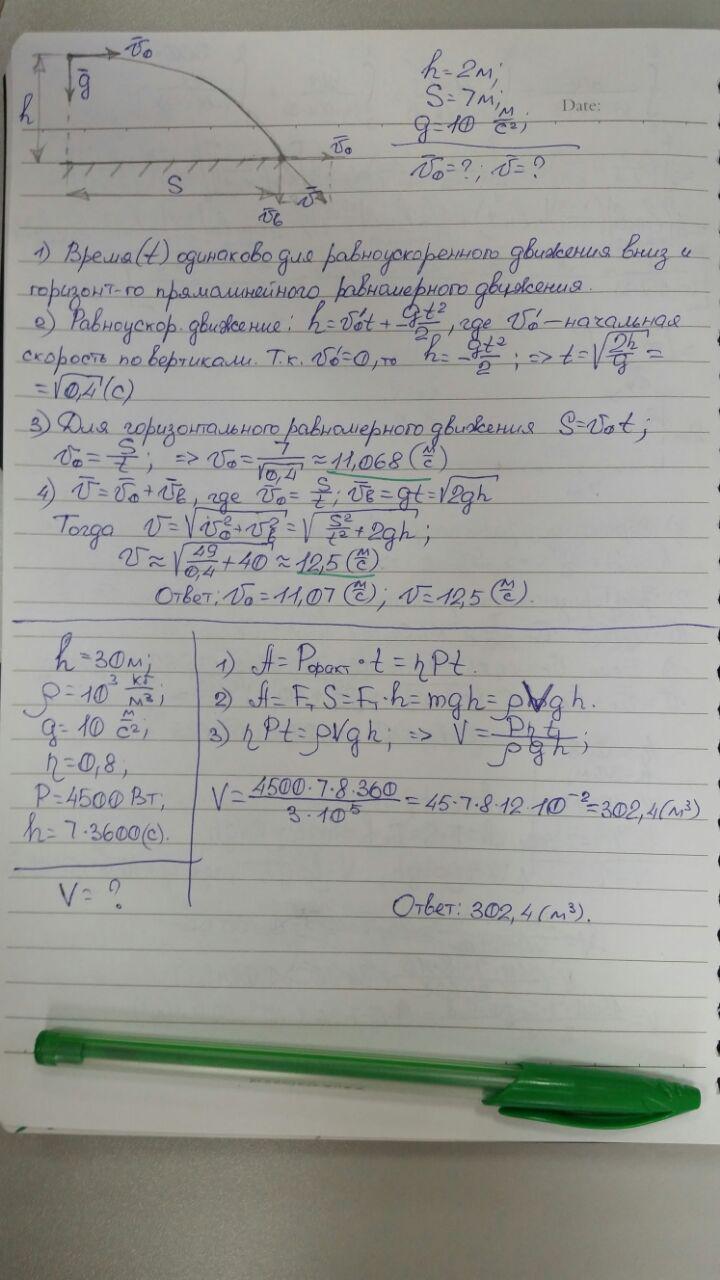 v̄₀
ḡ
h
S
v̄₀
v̄в
v̄
h=2м;
S=7м;
g=10 м/с²;
Date:
v̄₀=?; v̄=?
1) Время(t) одинаково для равноускоренного движения вниз и
горизонт-го прямолинейного равномерного движения.
2) Равноускор. движение: h=v₀'t+gt²/2, где v₀'–начальная
скорость по вертикали. Т.к. v₀'=0, то h=gt²/2; => t=√(2h/g)=
=√0,4(с)
3) Для горизонтального равномерного движения S=v₀t;
v₀=S/t; => v₀=7/√0,4≈11,068(м/с)
4) v̄=v̄₀+v̄в, где v̄₀=S/t; v̄в=gt=√2gh
Тогда v=√(v₀²+vв²)=√(S²/t²+2gh);
v≈√(49/0,4+40)≈12,5(м/с)
Ответ: v₀=11,07(м/с); v=12,5(м/с).
h=30м;
ρ=10³ кг/м³;
g=10 м/с²;
η=0,8;
P=4500Вт;
h=7·3600(с).
V=?
1) A=Pфакт·t=ηPt.
2) A=Fт S=Fт·h=mgh=ρVgh.
3) ηPt=ρVgh; => V=Pηt/ρgh;
V=4500·7·8·360/3·10⁵=45·7·8·12·10⁻²=302,4(м³)
Ответ: 302,4(м³).